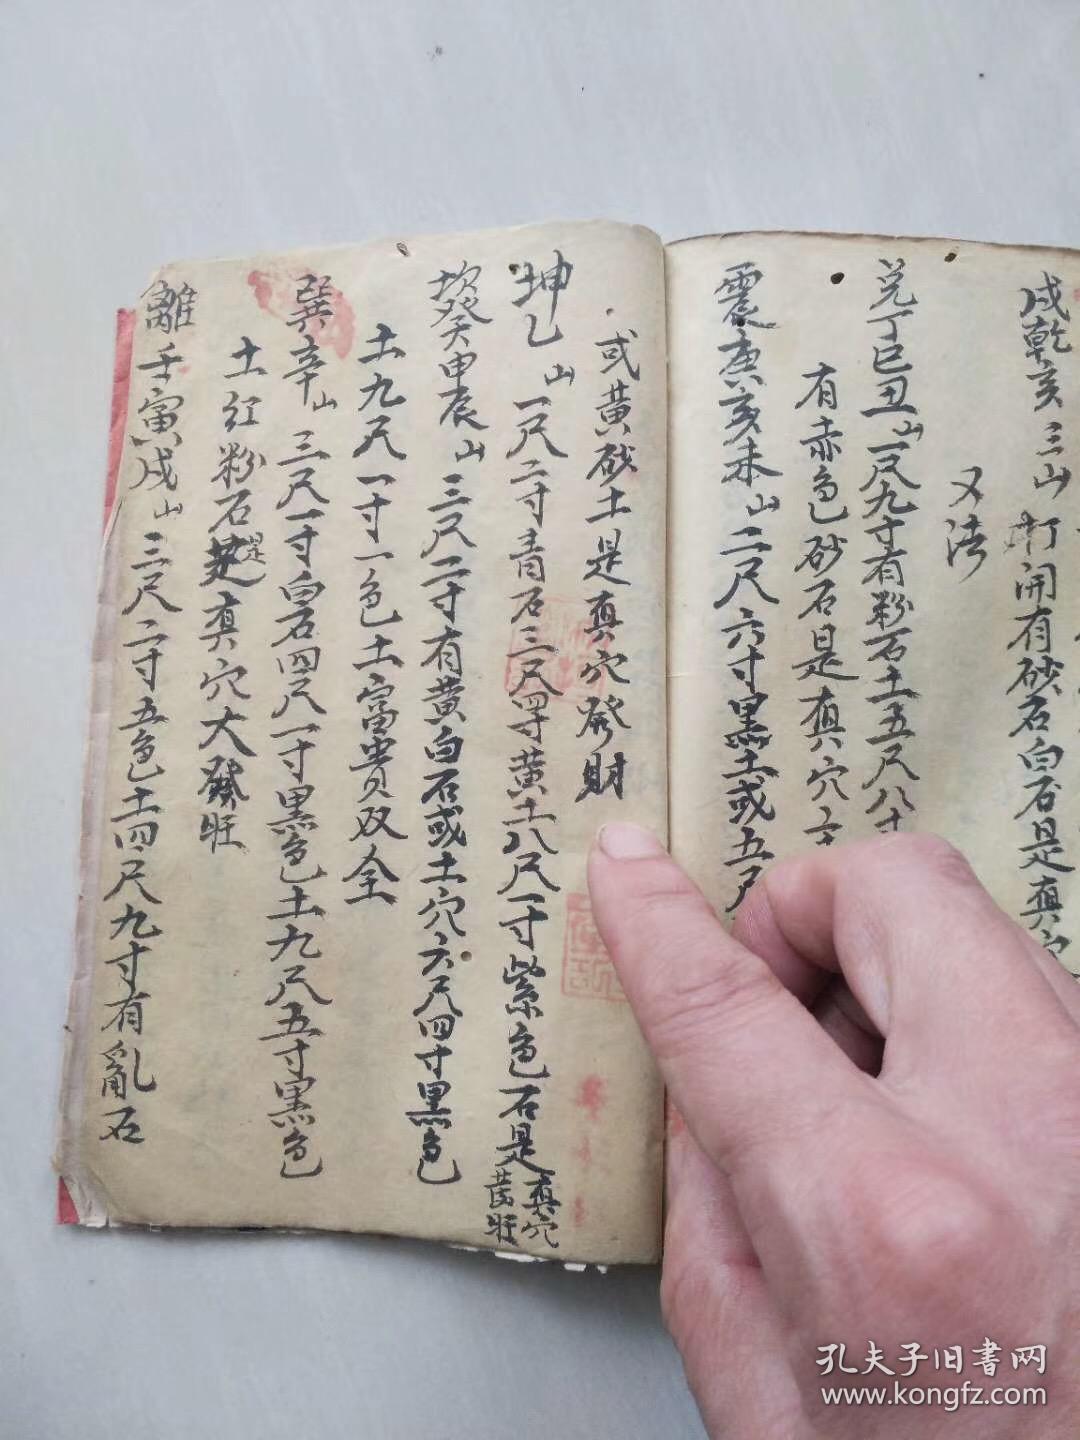 戌乾亥三山打開有砂石白石是真穴
又法
兌丁巳丑山一尺九寸有粉石土五尺八寸
有赤色砂石是真穴
震庚亥未山二尺六寸黑土或五尺
或黃砂土是真穴發財
坤乙山一尺二寸青石三尺四寸黃土八尺一寸紫色石是真穴
旺
坎癸申辰山三尺二寸有黃白石或土穴六尺四寸黑色
土九尺一寸一色土富貴双全
巽辛山三尺一寸白石四尺一寸黑色土九尺五寸黑色
土紅粉石是真穴大發旺
離壬寅戌山三尺二寸五色土四尺九寸有亂石
孔夫子旧書网
www.kongfz.com